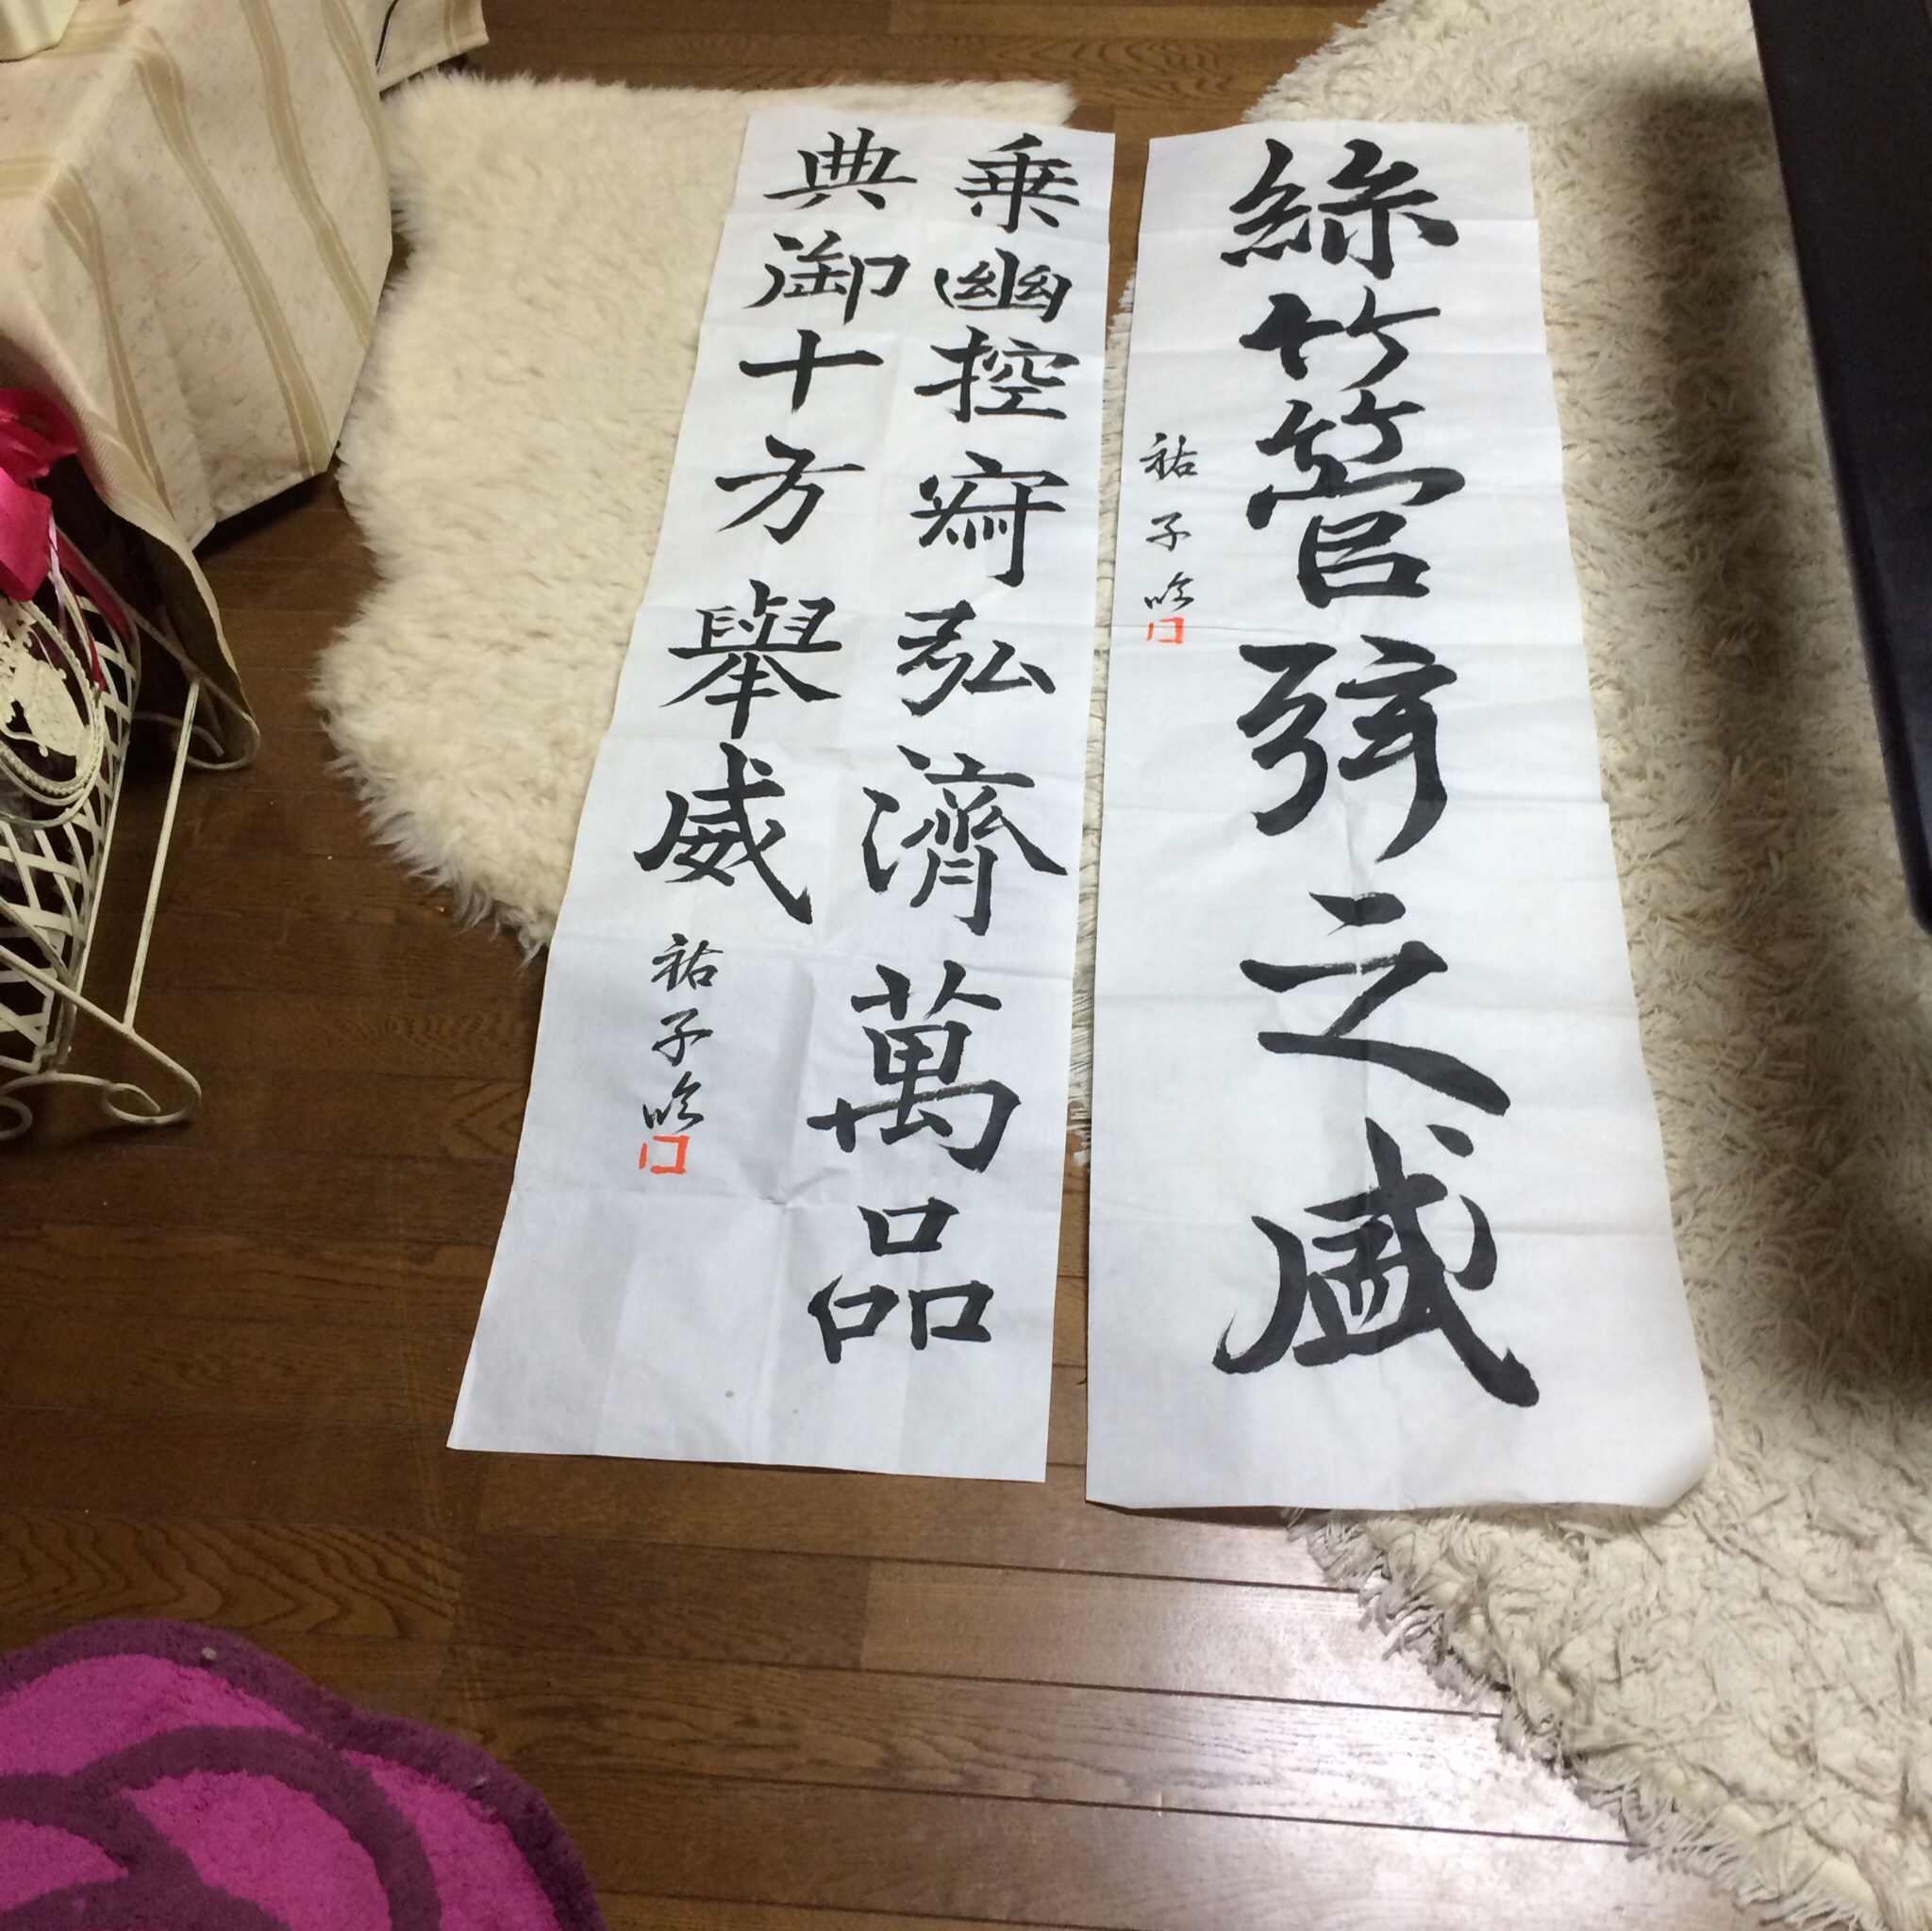 絲竹管弦之盛
祐子臨
乗幽控寂弘濟萬品
典御十方舉威
祐子臨